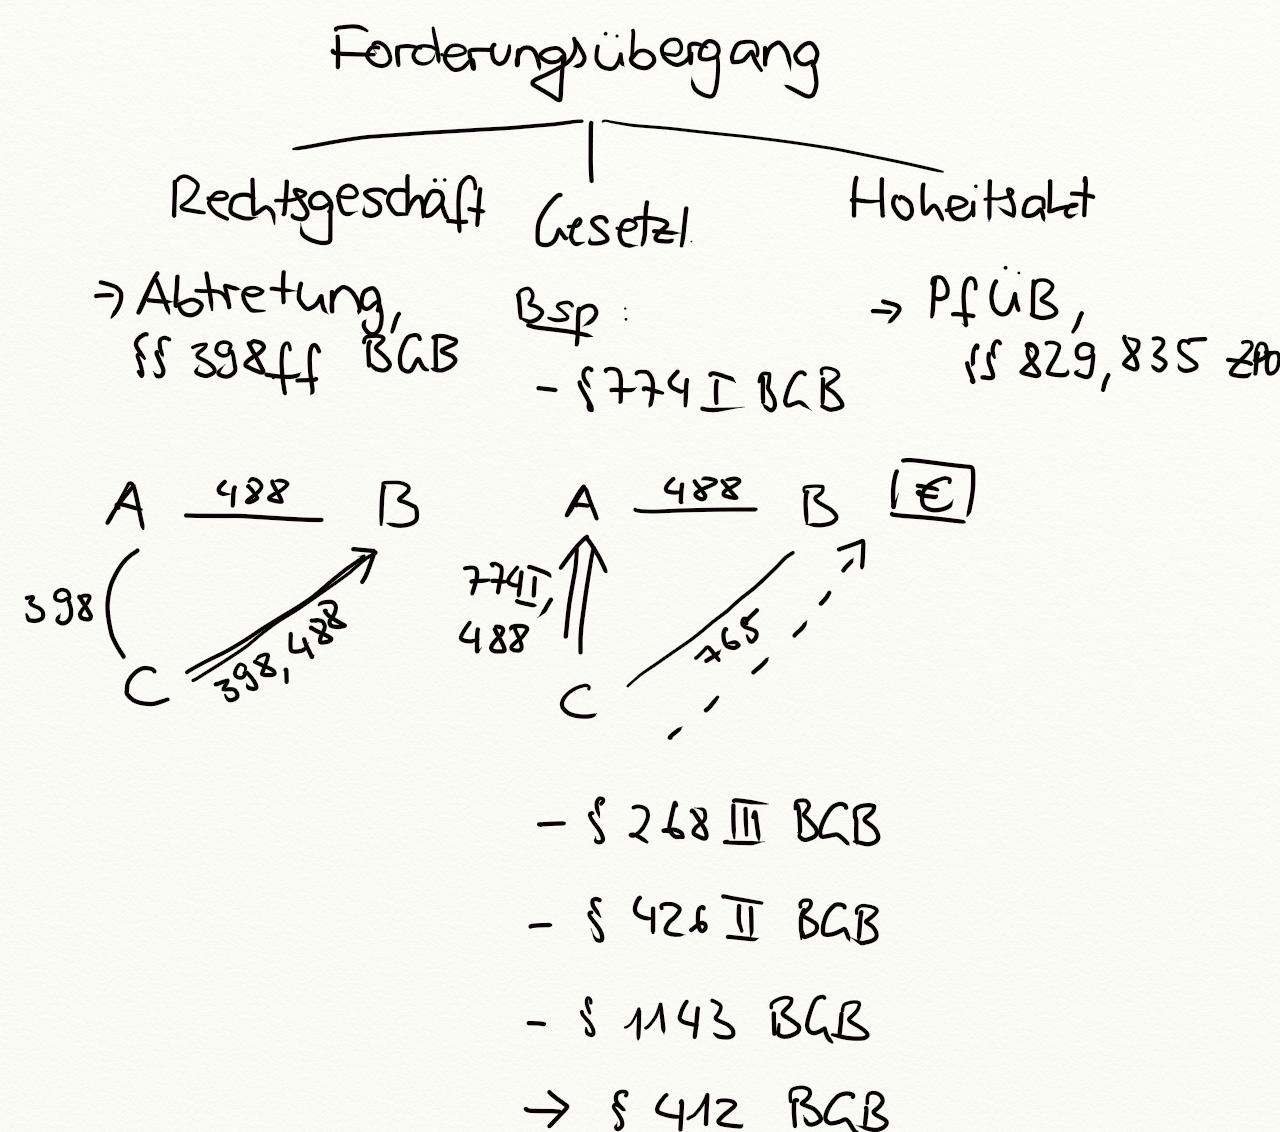 Forderungsübergang
Rechtsgeschäft
→ Abtretung,
§§ 398ff BGB
Gesetzl.
Bsp:
- § 774 I BGB
Hoheitsakt
→ PfÜB,
§§ 829, 835 ZPO
A 488 B
398
398, 488
C
A 488 B €
774 I,
488
765
C
- § 268 III BGB
- § 426 II BGB
- § 1143 BGB
→ § 412 BGB